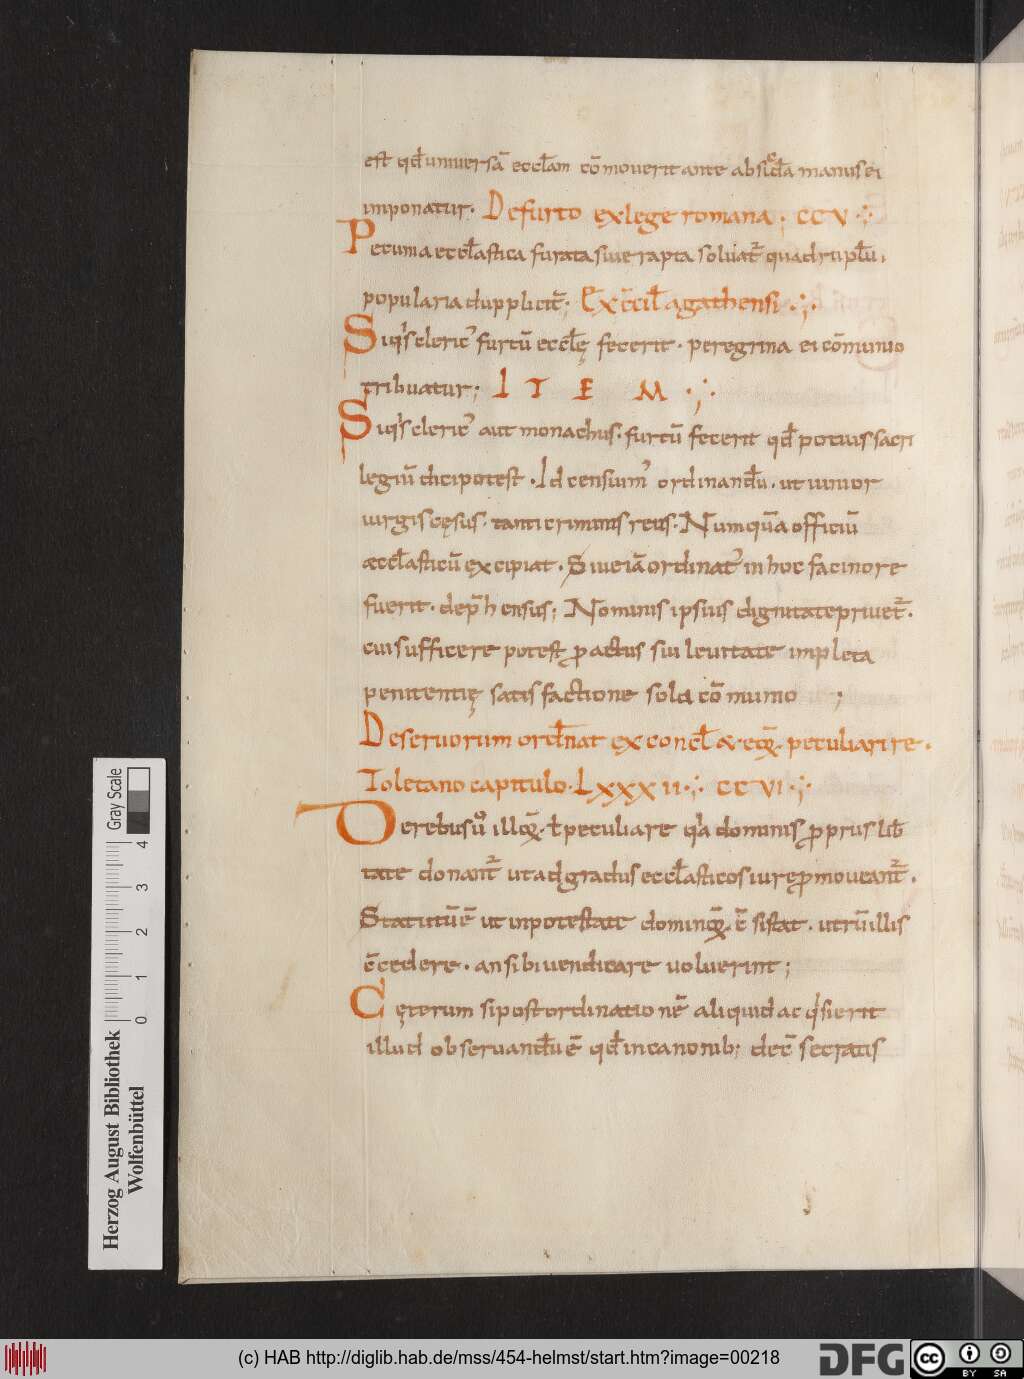 est qđ uniuersā eccłam cōmouerit ante absidā manus ei
imponatur. De furto ex lege romana. CCV.
Pecunia eccłastica furata siue rapta soluat̄ quadruplū.
popularia dupplicit̄; Ex c̄cił agathensi.
Siq̇s cleric᾿ furtū eccłę fecerit. peregrina ei cōmunio
tribuatur; ITEM
Siq̇s cleric᾿ aut monachus. furtū fecerit qđ potius sacri
legiū dici potest. Id censuim᾿ ordinandū. ut iunior
uirgis cęsus. tanti criminis reus. Numquā officiū
æccłasticū excipiat. Si uero iā ordinat᾿ in hoc facinore
fuerit. dep̄hensus; Nominis ipsius dignitate priuet̄.
cui sufficere potest ꝓ actus sui leuitate impleta
penitentię satisfactione sola cōmunio ;
De seruorum ordinat ex concł & eoꝝ peculiari re.
Toletano capitulo. LXXXII. CCVI.
De rebus ů illoꝝ. ł peculiare q̇a dominis ꝓpriis lib̄
tate donant̄ ut ad gradus eccłasticos iure ꝓmoueant̄.
Statutū ē ut in potestate dominoꝝ c̄sistat. utrū illis
c̄cedere. an sibi uendicare uoluerint;
Cęterum si post ordinationē aliquid acq̇sierit
illud obseruandū ē qđ in canonib; de c̄secratis
Herzog August Bibliothek
Wolfenbüttel
0 1 2 3 4
Gray Scale
(c) HAB http://diglib.hab.de/mss/454-helmst/start.htm?image=00218
DFG
cc BY SA